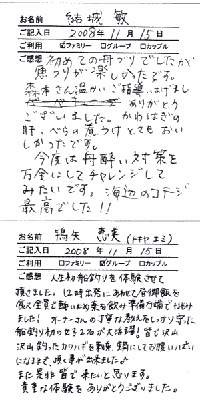 お名前 結城 敏
ご記入日 2008年 11月 15日
ご利用 ☑ファミリー □グループ □カップル
ご感想 初めての舟づりでしたが
魚つりが楽しかったです。
森本さん温かいご指導
ありがとう
ございました。かわはぎの
肝、べらの煮つけとてもおい
しかったです。
今度は舟酔い対策を
万全にしてチャレンジして
みたいです。海辺のコテージ
最高でした!!
お名前 鴇矢 恵美 (トキヤ エミ)
ご記入日 2008年 11月 15日
ご利用 □ファミリー ☑グループ □カップル
ご感想 人生初船釣りを体験させて
頂きました。12時出発にあわせて
ました! オーナーさんの丁寧な教えをしっかり守り
船釣り初のせる 皆で沢山
沢山釣ったカワハギを刺身、鍋にしてお腹いっぱい
になるまで、頂く事が出来ました♪
また是非皆で来たいと思います。
貴重な体験をありがとうございました。